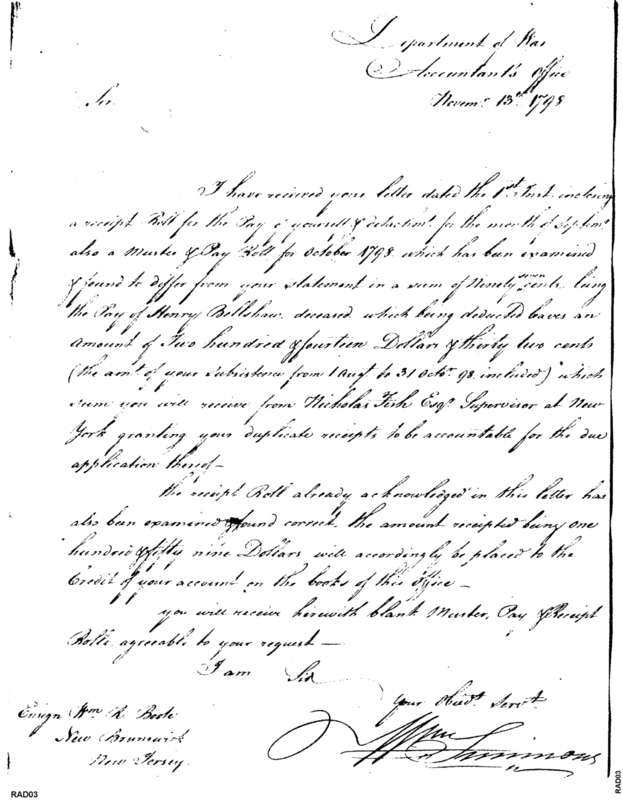 Department of War
Accountant's Office
Novemr. 13th 1798
Sir.
I have recieved your letter dated the 1st Inst. inclosing
a receipt Roll for the Pay of yourself & detachmt. for the month of Septemr.
also a Muster & Pay Roll for October 1798 which has been examined
& found to differ from your statement in a sum of Ninety seven cents being
the Pay of Henry Bellshaw, deceased which being deducted leaves an
amount of Two hundred & fourteen Dollars & thirty two cents
(the amt. of your subsistence from 1 Augt. to 31 Octor. 98 included) which
sum you will receive from Nicholas Fish Esqr. Supervisor at New
York granting your duplicate receipts to be accountable for the due
application thereof—
the receipt Roll already acknowledged in this letter has
also been examined & found correct, the amount receipted being one
hundred & fifty nine Dollars will accordingly be placed to the
Credit of your account on the books of this office—
you will receive herewith blank Muster, Pay & Receipt
Rolls agreeable to your request—
I am Sir
your Obedt. Servt.
Wm Simmons
Ensign Wm R Boote
New Brunswick
New Jersey.
RAD03
RAD03